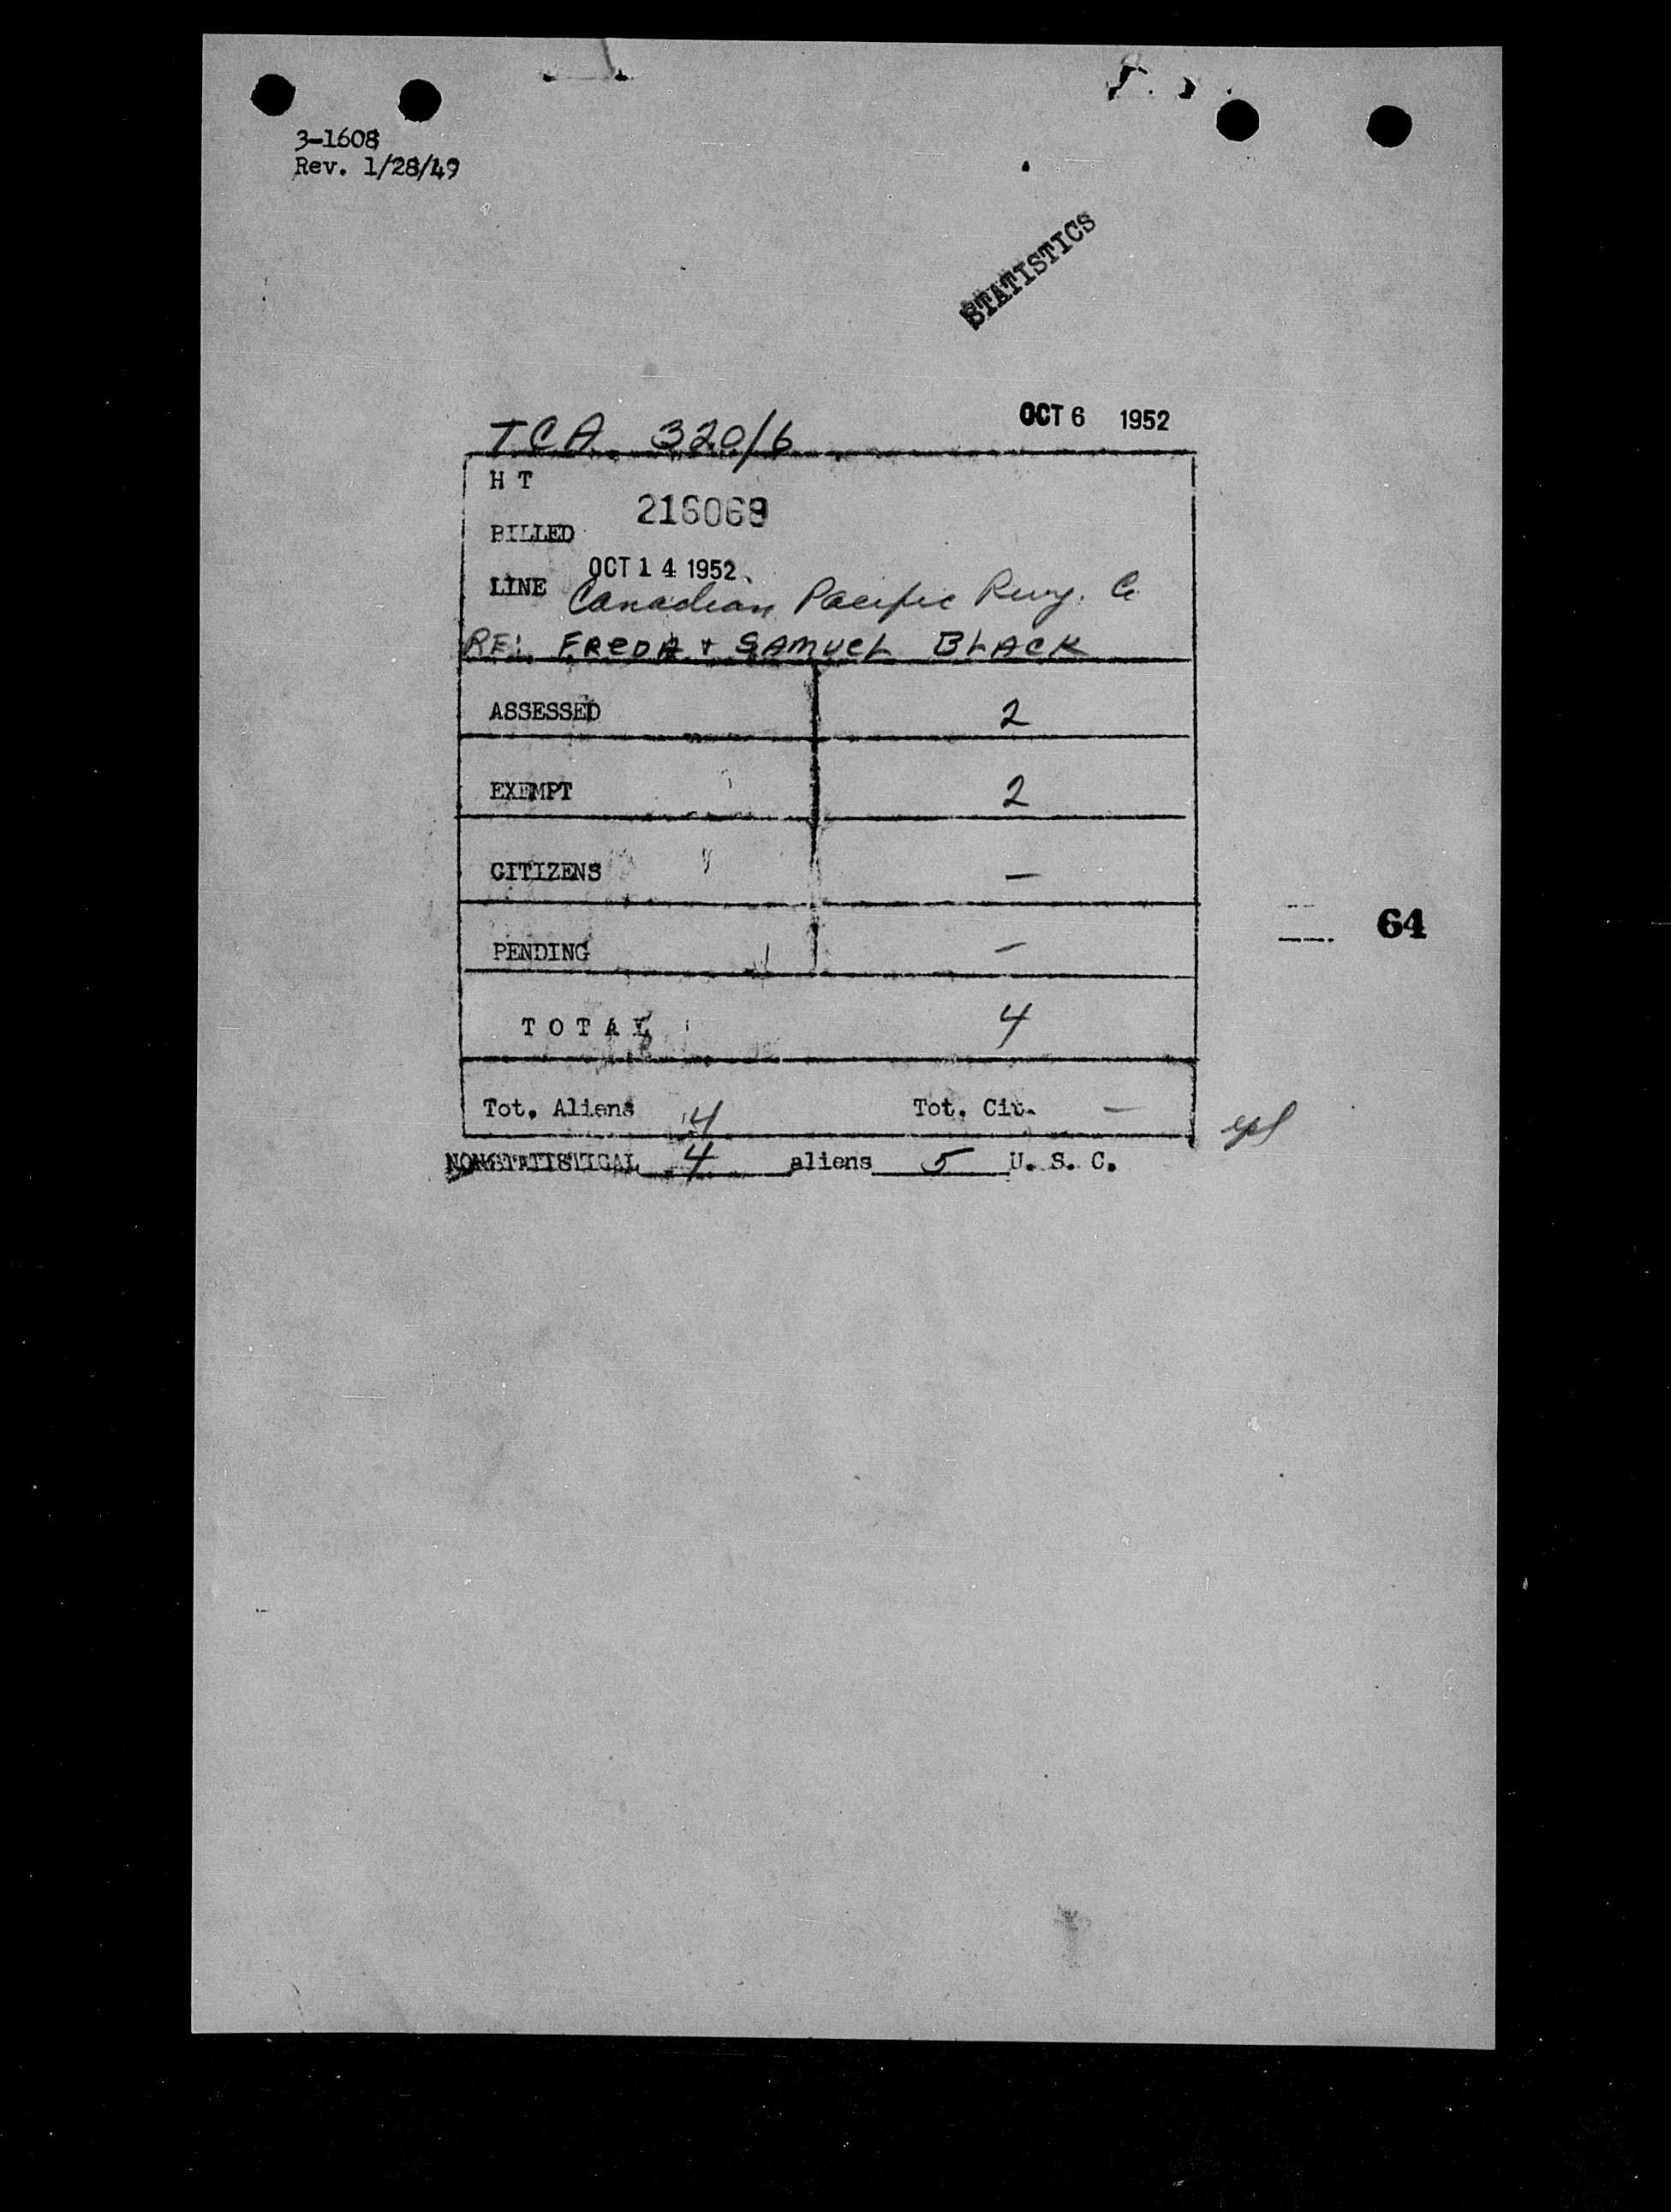 3-1608
Rev. 1/28/49
STATISTICS
OCT 6 1952
TCA 320/6
H T
216069
BILLED
OCT 14 1952
LINE Canadian Pacific Rwy. Co
RE: FREDA + SAMUEL BLACK
ASSESSED 2
EXEMPT 2
CITIZENS —
PENDING —
64
TOTAL 4
Tot. Aliens 4 Tot. Cit. —
NONSTATISTICAL 4 aliens 5 U. S. C.